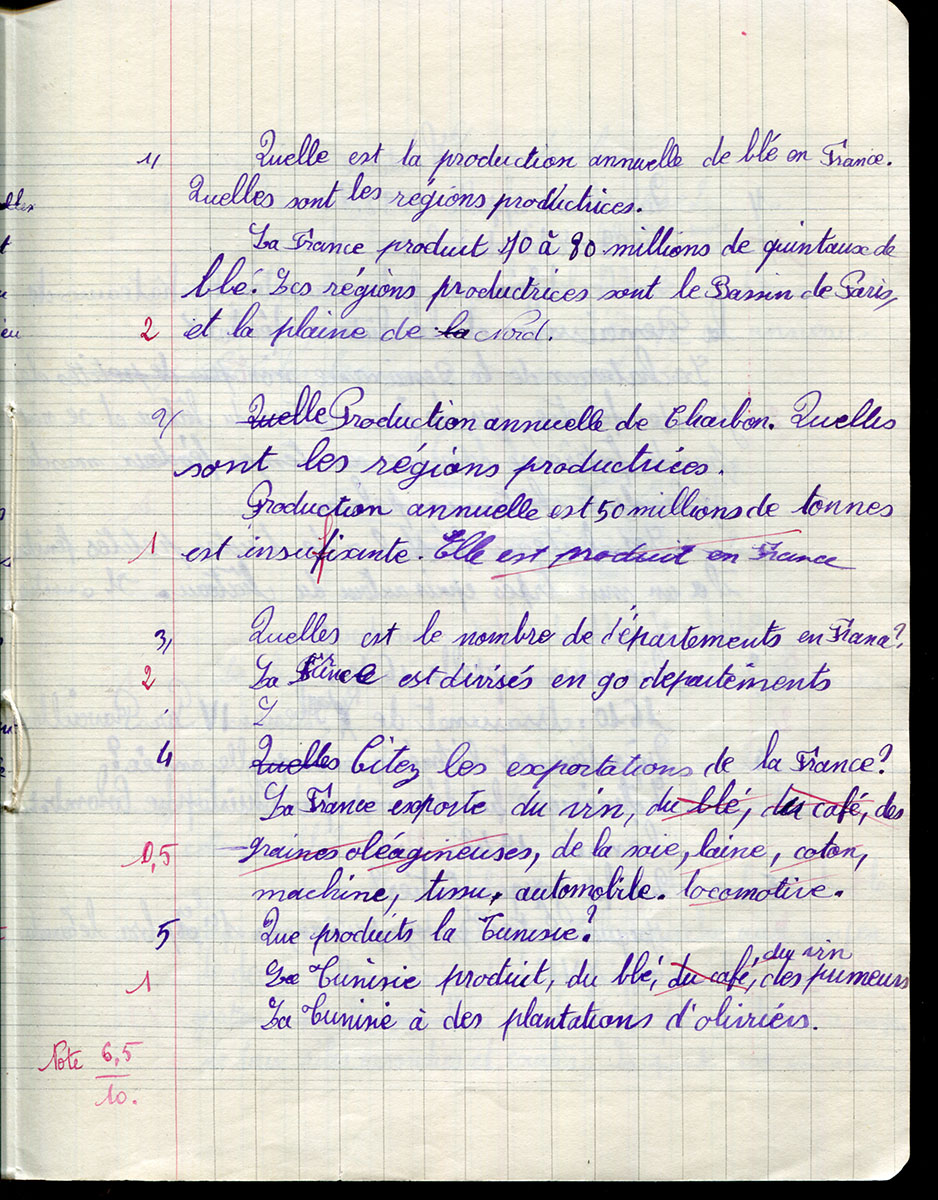 1/ Quelle est la production annuelle de blé en France.
Quelles sont les régions productrices.
La France produit 70 à 80 millions de quintaux de
blé. Les régions productrices sont le Bassin de Paris,
2 et la plaine de la Nord.
2/ Quelle Production annuelle de Charbon. Quelles
sont les régions productrices.
Production annuelle est 50 millions de tonnes
1 est insufixante. Elle est produit en France
3, Quelles est le nombre de départements en France?
2 La France est divisés en 90 departements
L
4 Quelles Citez les exportations de la France?
La France exporte du vin, du blé, du café, des
0,5 graines oléagineuses, de la soie, laine, coton,
machine, tissu, automobile. locomotive.
5 Que produits la Tunisie?
, du vin
1 La Tunisie produit, du blé, du café, des pumeurs
La Tunisie à des plantations d'oliviérs.
Note 6,5
10.